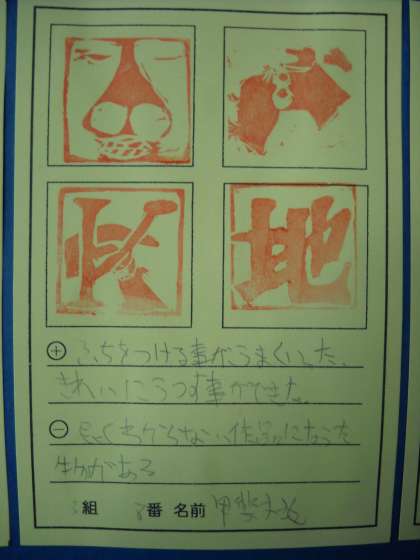 地
⊕ ふちをつける事がうまくいった。
きれいにうつす事ができた。
⊖ よくわからない作品になった
物がある
組 番 名前 甲斐